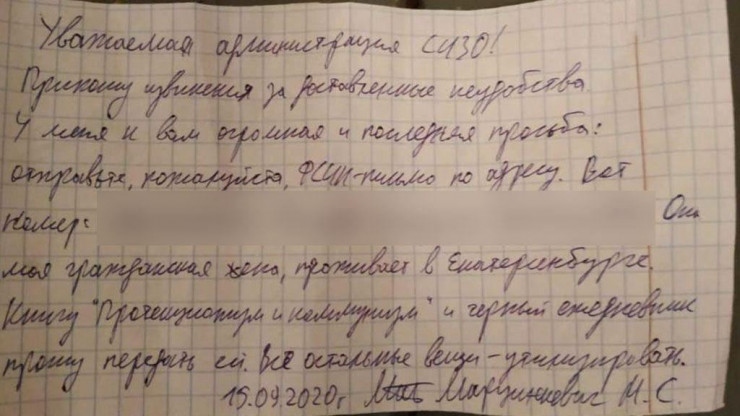 Уважаемая администрация СИЗО!
Приношу извинения за доставленные неудобства.
У меня к вам огромная и последняя просьба:
отправьте, пожалуйста, ФСИН-письмо по адресу. Вот
номер: Она
моя гражданская жена, проживает в Екатеринбурге.
Книгу "Протекционизм и коммунизм" и черный ежедневник
прошу передать ей. Все остальные вещи - утилизировать.
19.09.2020г Марцинкевич М. С.